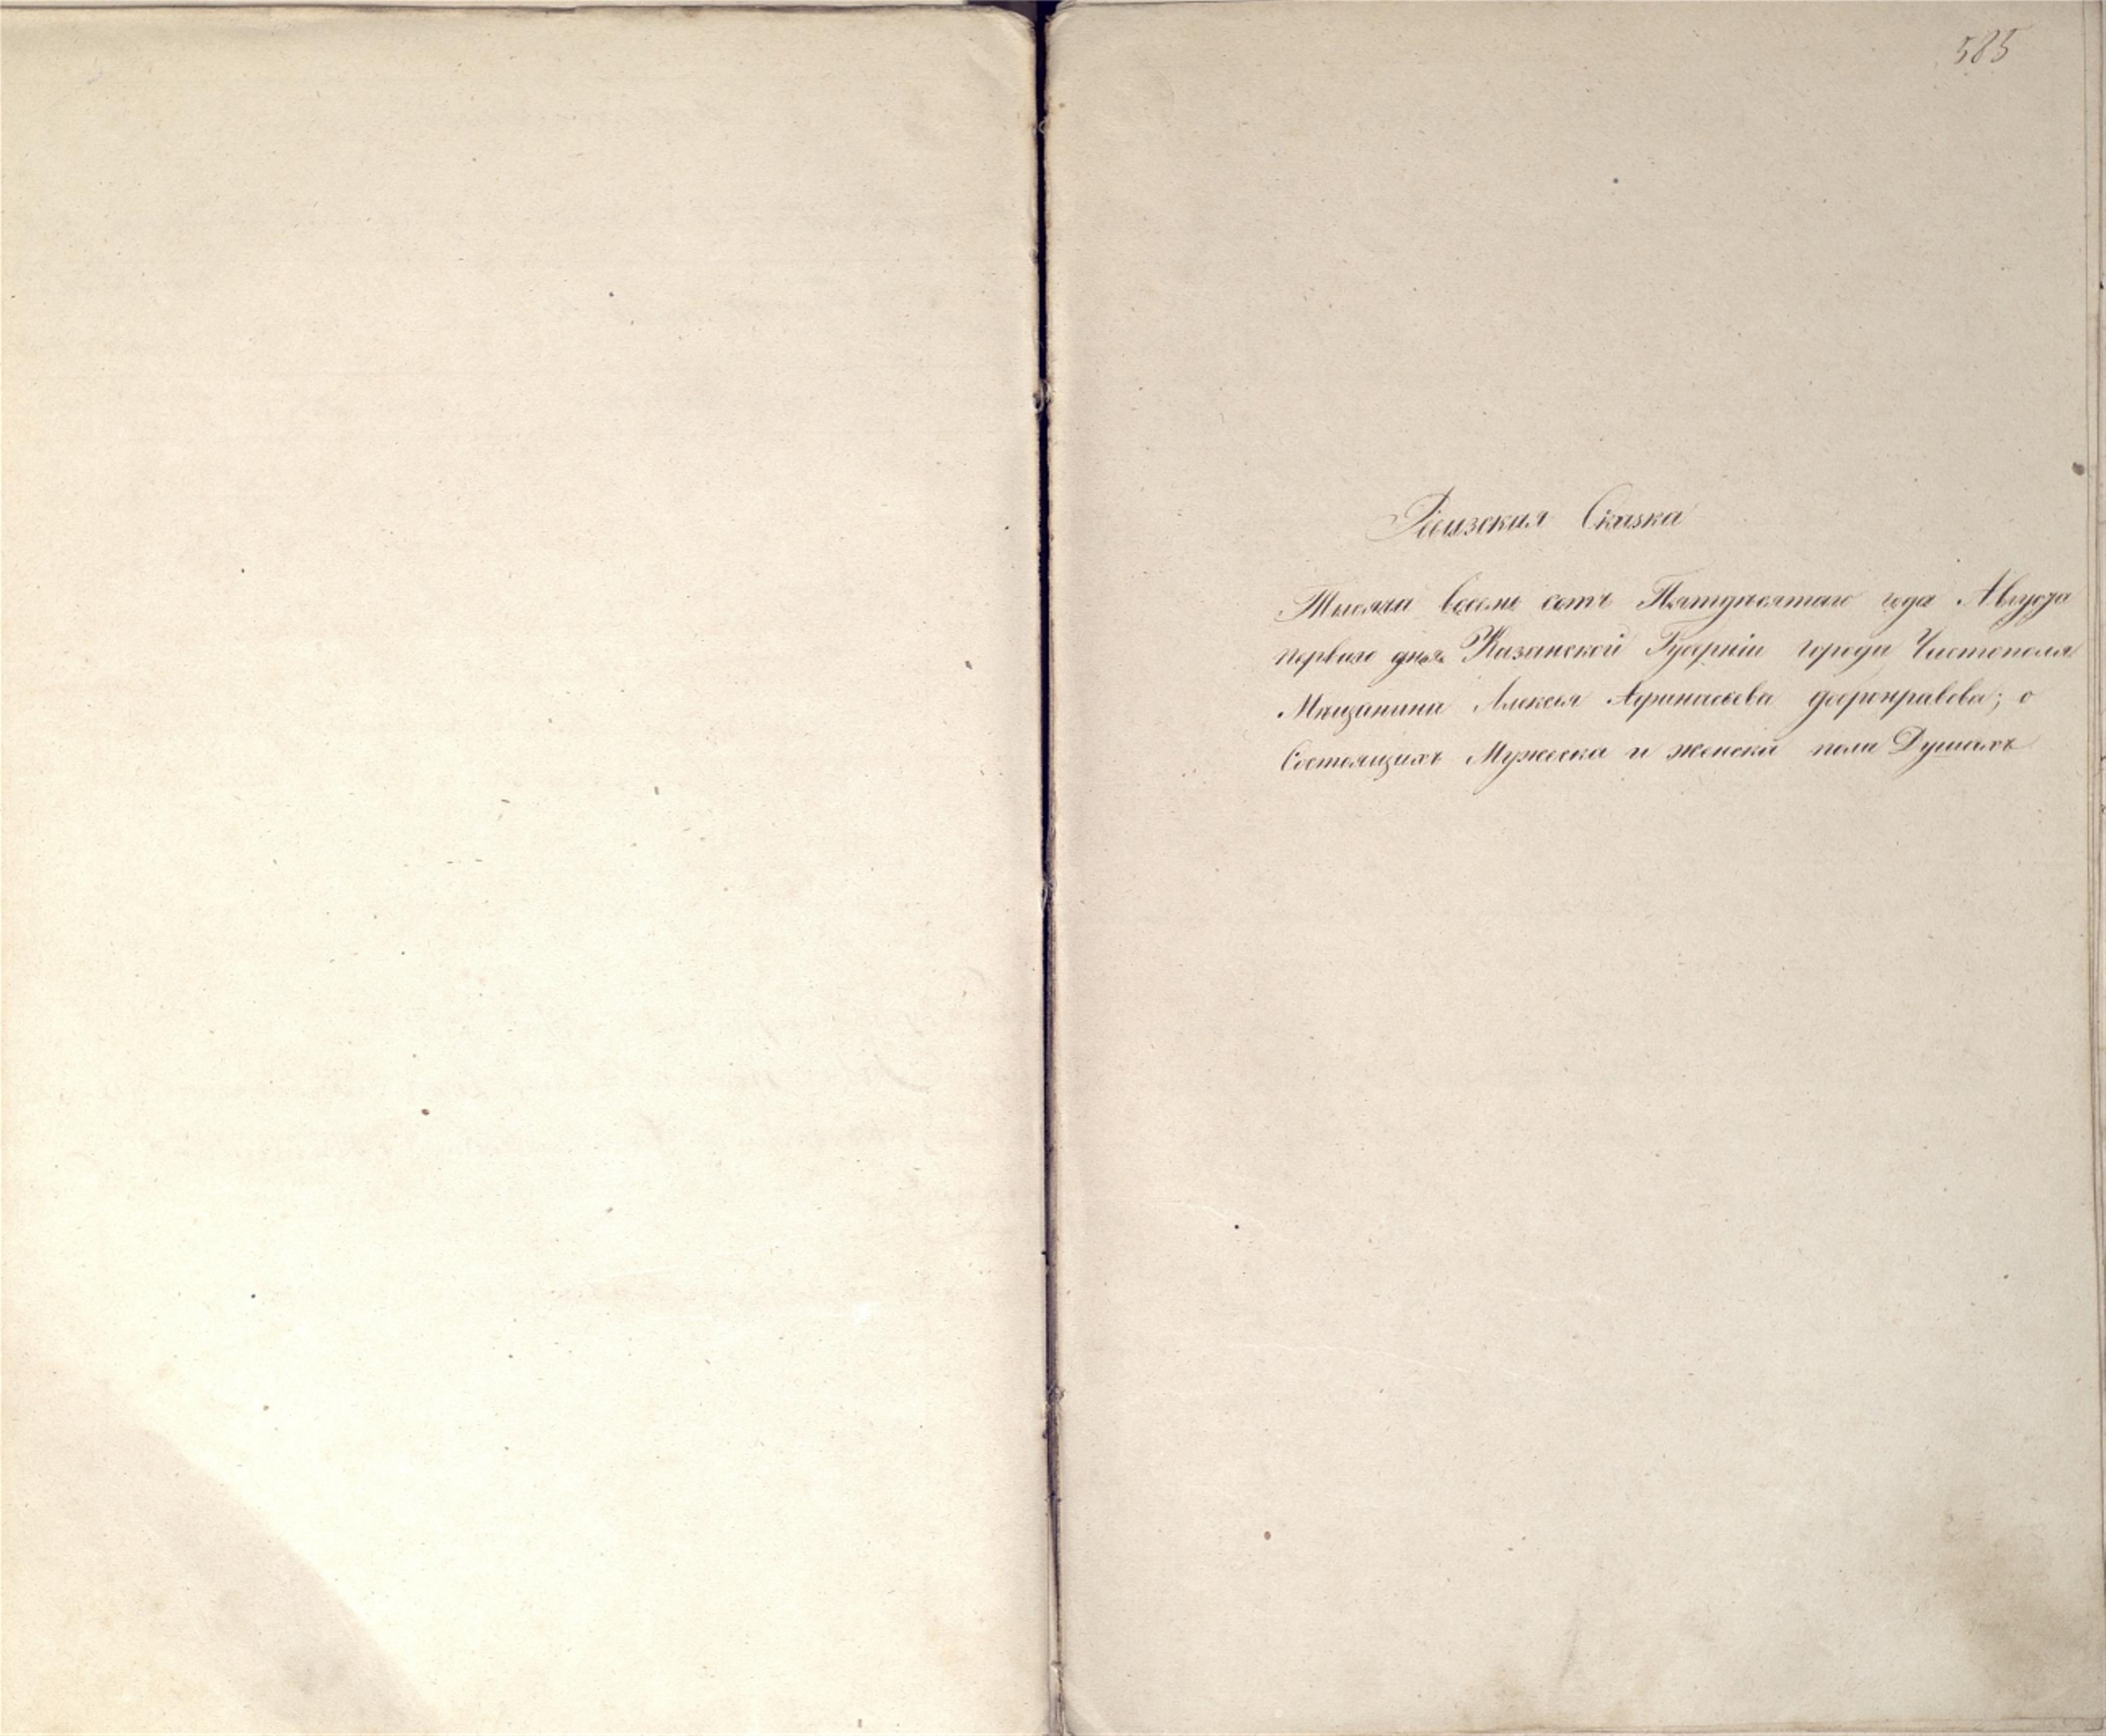 585
Ревизская Сказка
Тысяча восемь сотъ Пятдѣсятаго года Августа
перваго дня Казанской Губерніи города Чистополя
Мѣщанина Алексѣя Афанасьева доброправова; о
Состоящихъ Мужеска и женска пола Душахъ